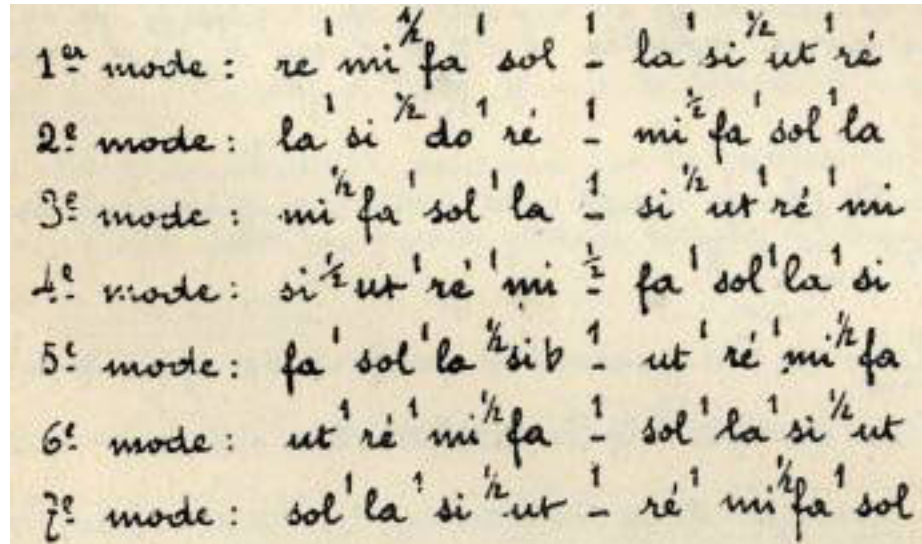 1er mode : re 1 mi 1/2 fa 1 sol 1 - la 1 si 1/2 ut 1 ré
2e mode : la 1 si 1/2 do 1 ré 1 - mi 1/2 fa 1 sol 1 la
3e mode : mi 1/2 fa 1 sol 1 la 1 - si 1/2 ut 1 ré 1 mi
4e mode : si 1/2 ut 1 ré 1 mi 1/2 - fa 1 sol 1 la 1 si
5e mode : fa 1 sol 1 la 1/2 si b 1 - ut 1 ré 1 mi 1/2 fa
6e mode : ut 1 ré 1 mi 1/2 fa 1 - sol 1 la 1 si 1/2 ut
7e mode : sol 1 la 1 si 1/2 ut 1 - ré 1 mi 1/2 fa 1 sol